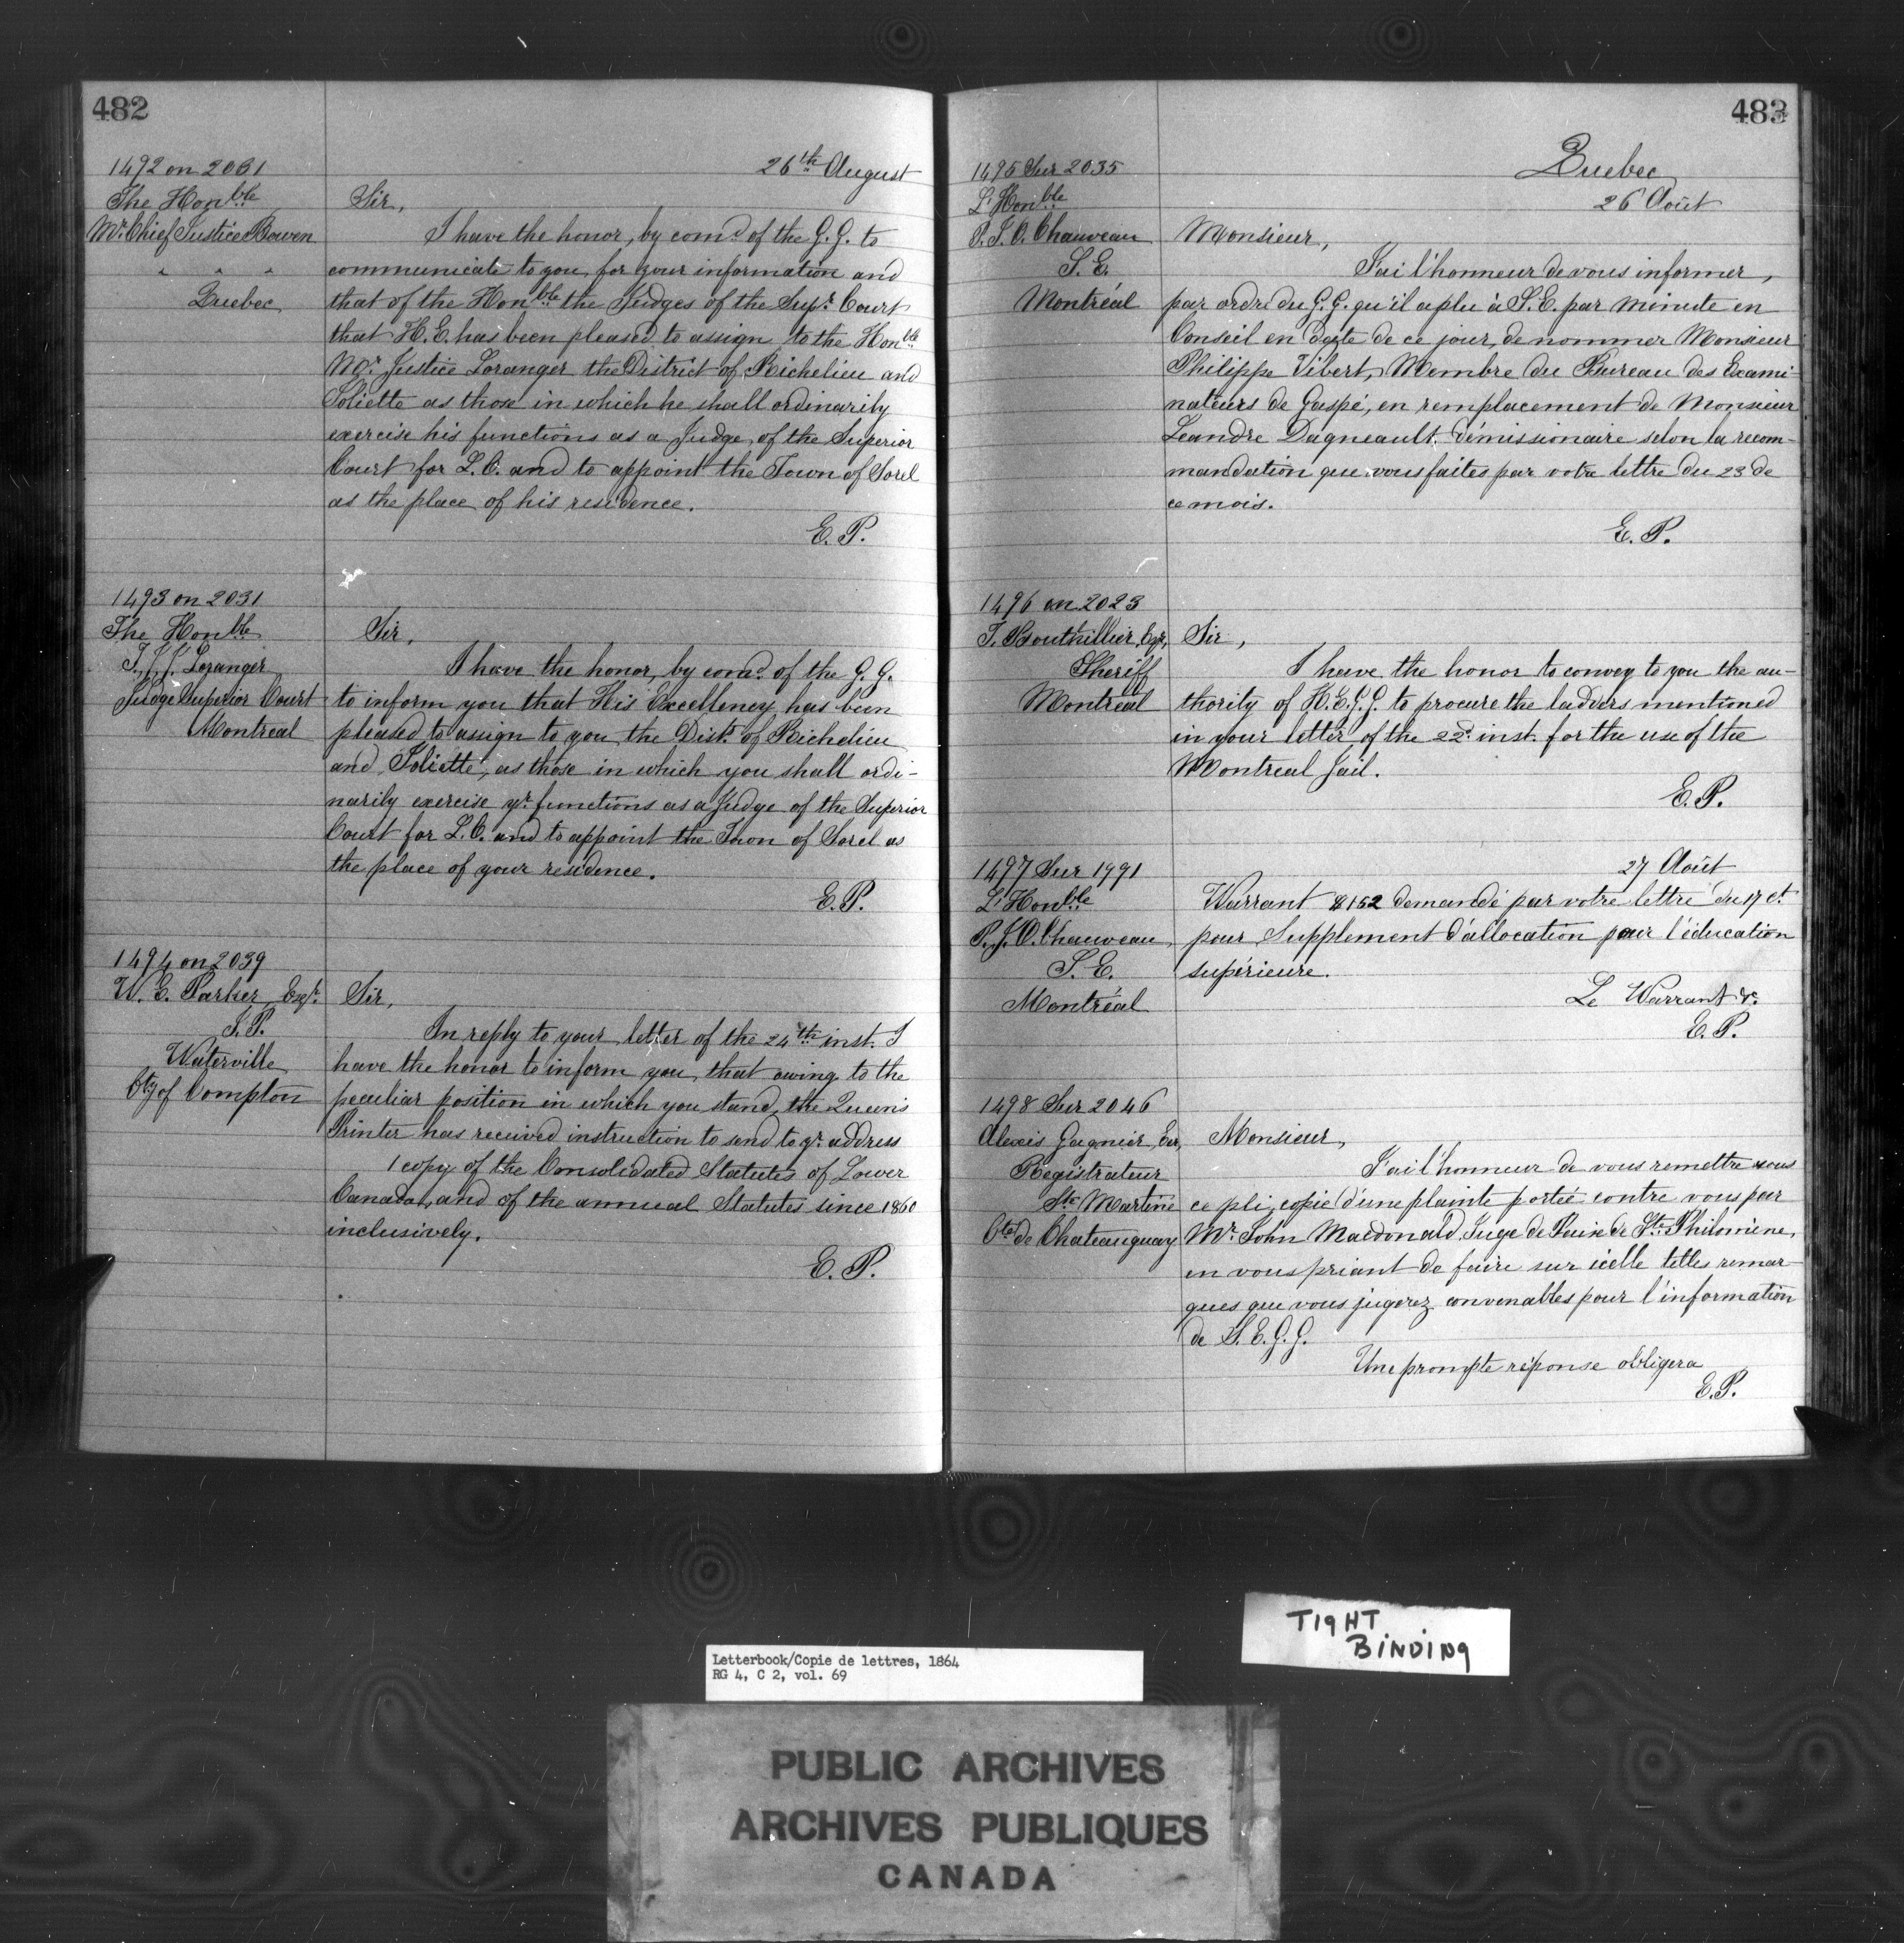 482
26th August
1492 on 2061
The Honble
Mr. Chief Justice Bowen
" " "
Quebec
Sir,
I have the honor, by comd. of the G. G. to
communicate to you, for your information and
that of the Honble the Judges of the Supr. Court
that H. E. has been pleased to assign to the Honble
Mr. Justice Loranger the District of Richelieu and
Joliette as those in which he shall ordinarily
exercise his functions as a Judge of the Superior
Court for L. C. and to appoint the Town of Sorel
as the place of his residence.
E. P.
1493 on 2031
The Honble
T. J. J. Loranger
Judge Superior Court
Montreal
Sir,
I have the honor, by comd. of the G. G.
to inform you that His Excellency has been
pleased to assign to you the Dists. of Richelieu
and Joliette, as those in which you shall ordi-
narily exercise yr. functions as a Judge of the Superior
Court for L. C. and to appoint the Town of Sorel as
the place of your residence.
E. P.
1494 on 2039
W. E. Parker, Esqr.
J. P.
Waterville
Cty of Compton
Sir,
In reply to your letter of the 24th inst. I
have the honor to inform you, that owing to the
peculiar position in which you stand, the Queen's
Printer has received instruction to send to yr. address
1 copy of the Consolidated Statutes of Lower
Canada, and of the annual Statutes since 1860
inclusively.
E. P.
483
Quebec
26 Août
1495 Sur 2035
L'Honble
P. J. O. Chauveau
S. E.
Montréal
Monsieur,
J'ai l'honneur de vous informer,
par ordre du G. G. qu'il a plu à S. E. par minute en
Conseil en date de ce jour, de nommer Monsieur
Philippe Vibert, Membre du Bureau des Exami-
nateurs de Gaspé, en remplacement de Monsieur
Leandre Dagneault, démissionaire selon la recom-
mandation que vous faites par votre lettre du 23 de
ce mois.
E. P.
1496 on 2023
T. Bouthillier, Esqr,
Sheriff
Montreal
Sir,
I have the honor to convey to you the au-
thority of H. E. G. G. to procure the ladders mentioned
in your letter of the 22d. inst. for the use of the
Montreal Jail.
E. P.
27 Août
1497 Sur 1991
L'Honble
P. J. O. Chauveau,
S. E.
Montréal
Warrant $152 demandé par votre lettre du 17 ct.
pour Supplement d'allocation pour l'éducation
supérieure.
Le Warrant &c.
E. P.
1498 Sur 2046
Alexis Gagnier, Ecr,
Registrateur
Ste Martine
Cté de Chateauguay
Monsieur,
J'ai l'honneur de vous remettre sous
ce pli, copie d'une plainte portée contre vous par
Mr. John Macdonald, Juge de Paix de Ste Philomène,
en vous priant de faire sur icelle telles remar-
ques que vous jugerez convenables pour l'information
de S. E. G. G.
Une prompte réponse obligera
E. P.
TIGHT
BINDING
Letterbook/Copie de lettres, 1864
RG 4, C 2, vol. 69
PUBLIC ARCHIVES
ARCHIVES PUBLIQUES
CANADA